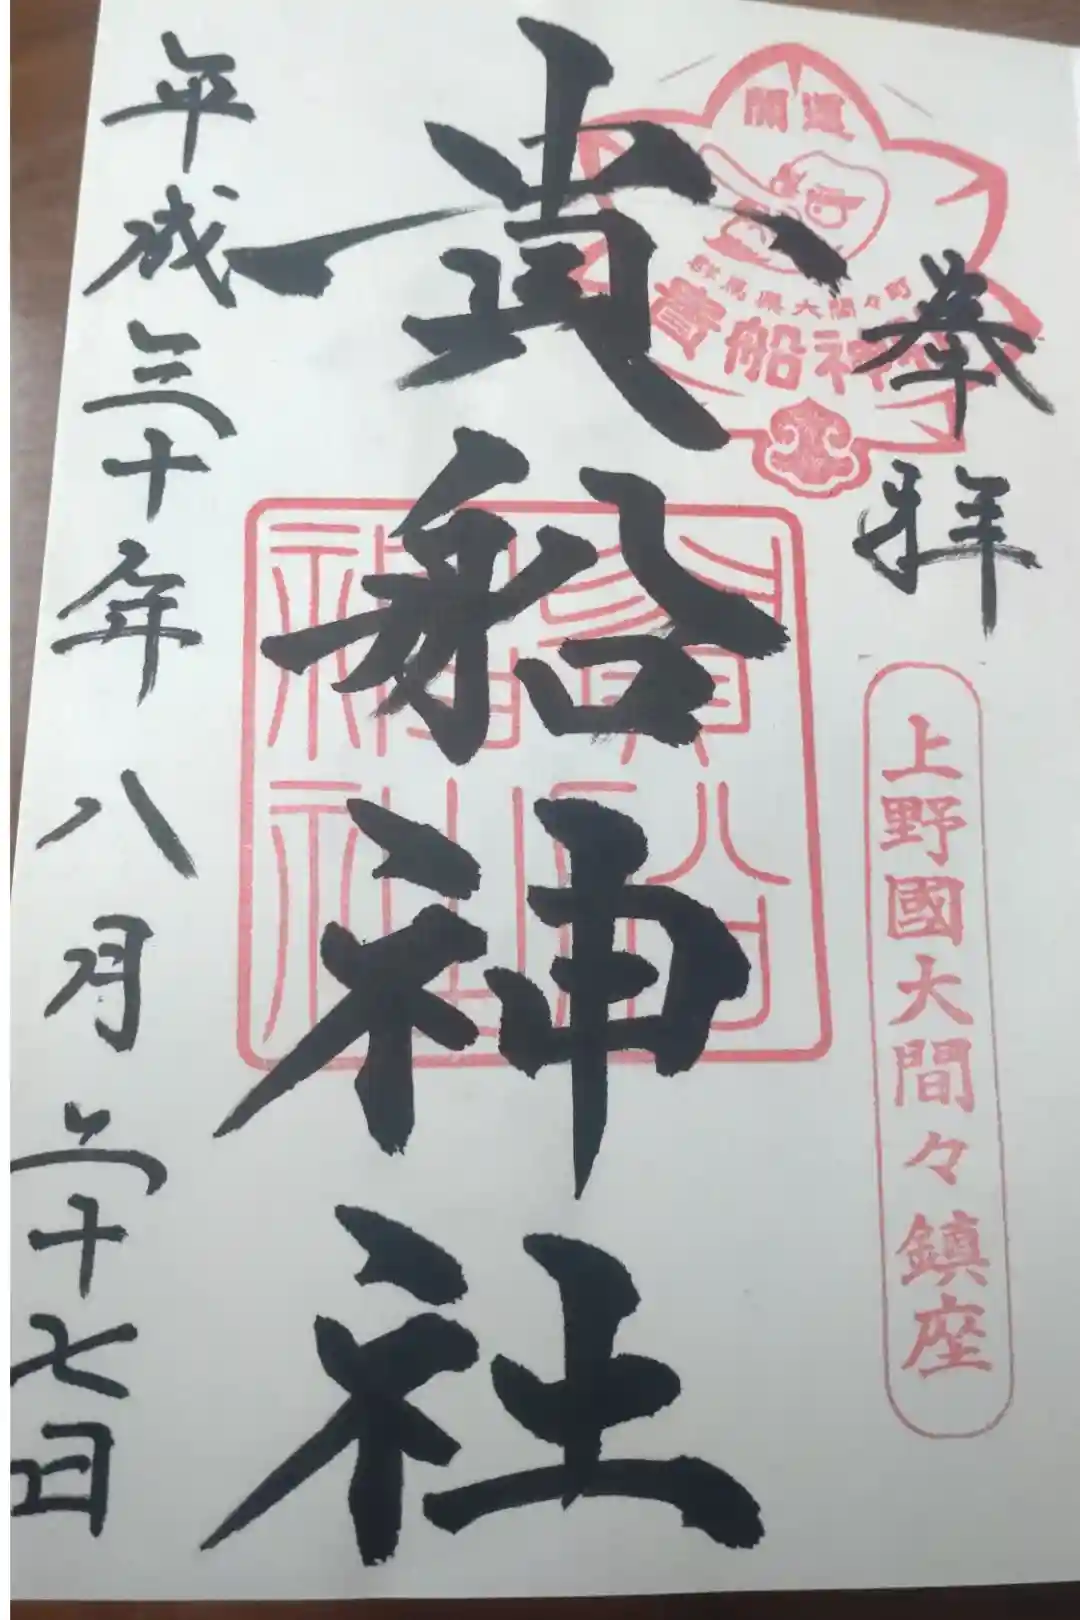 開運
群馬県大間々町
貴船神社
奉拝
上野國大間々鎮座
貴船神社
貴船神社
平成三十年八月二十七日